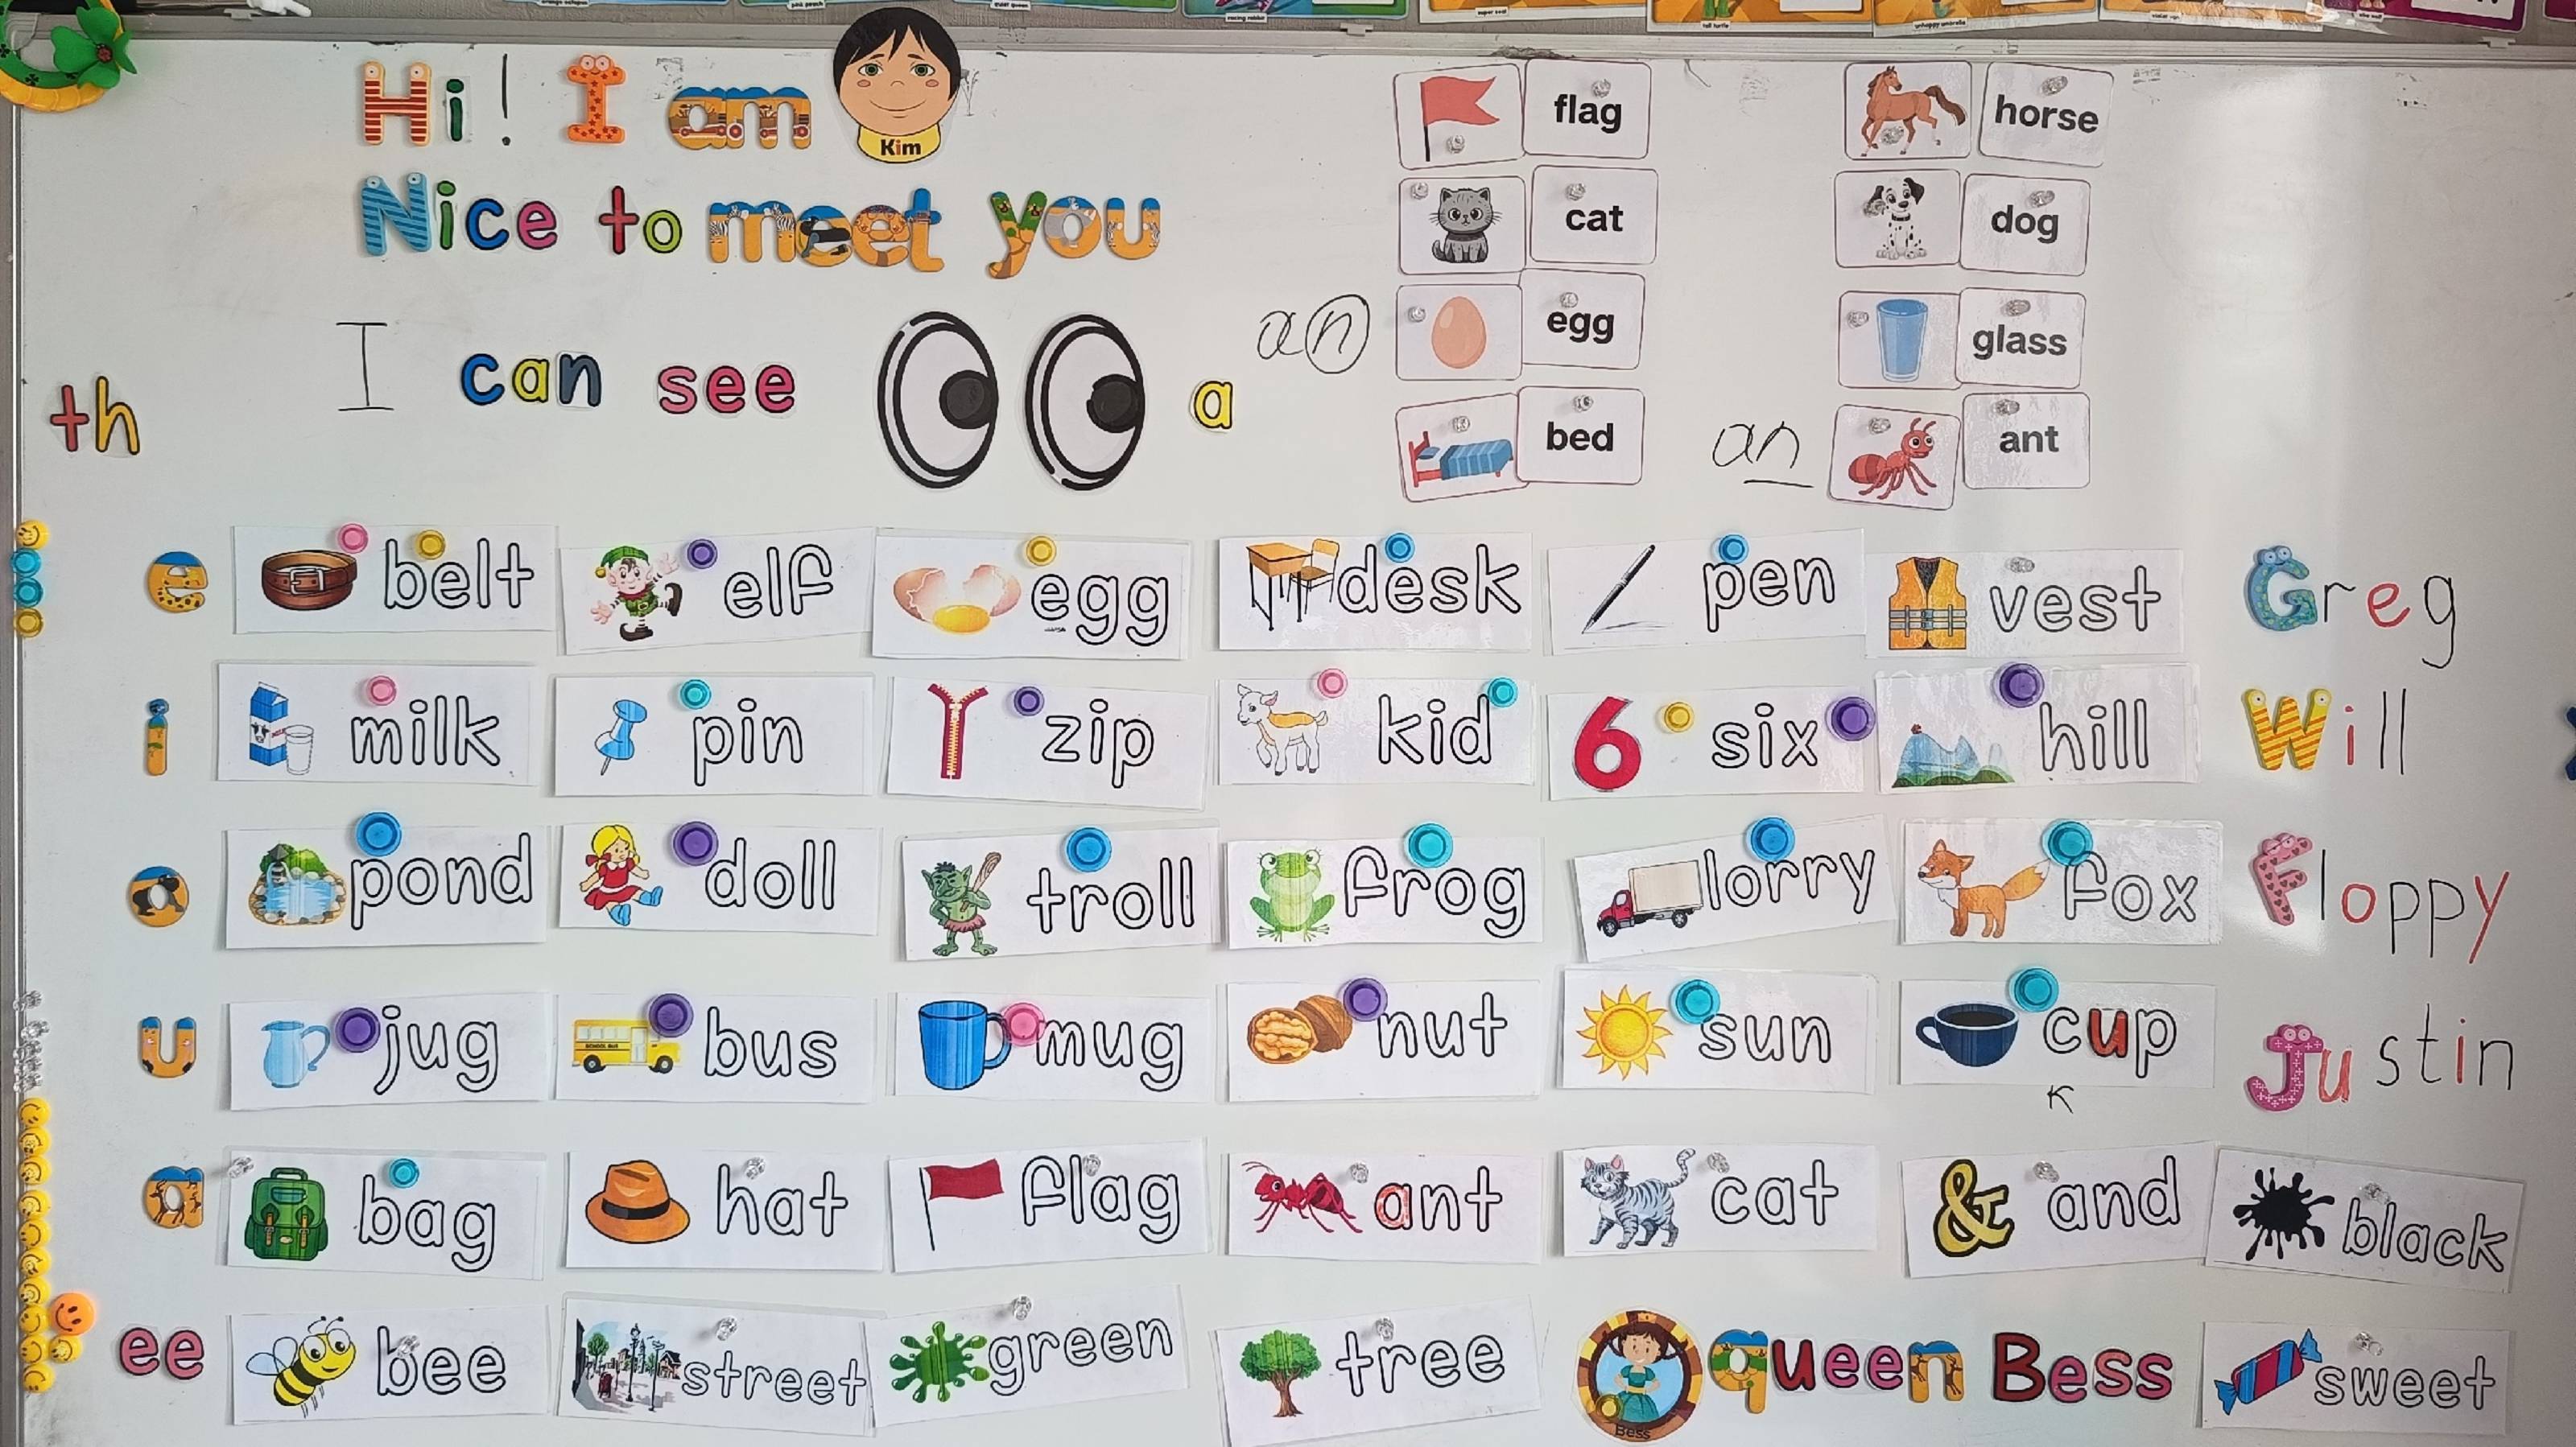 Hi! I am Kim
Nice to meet you
I can see a
an
th
flag
cat
egg
bed
horse
dog
glass
an ant
e belt elf egg desk pen vest Greg
i milk pin zip kid 6 six hill Will
o pond doll troll frog lorry fox Floppy
u jug SCHOOL BUS bus mug nut sun cup Justin
a bag hat flag ant cat & and black
ee bee street green tree Bess queen Bess sweet